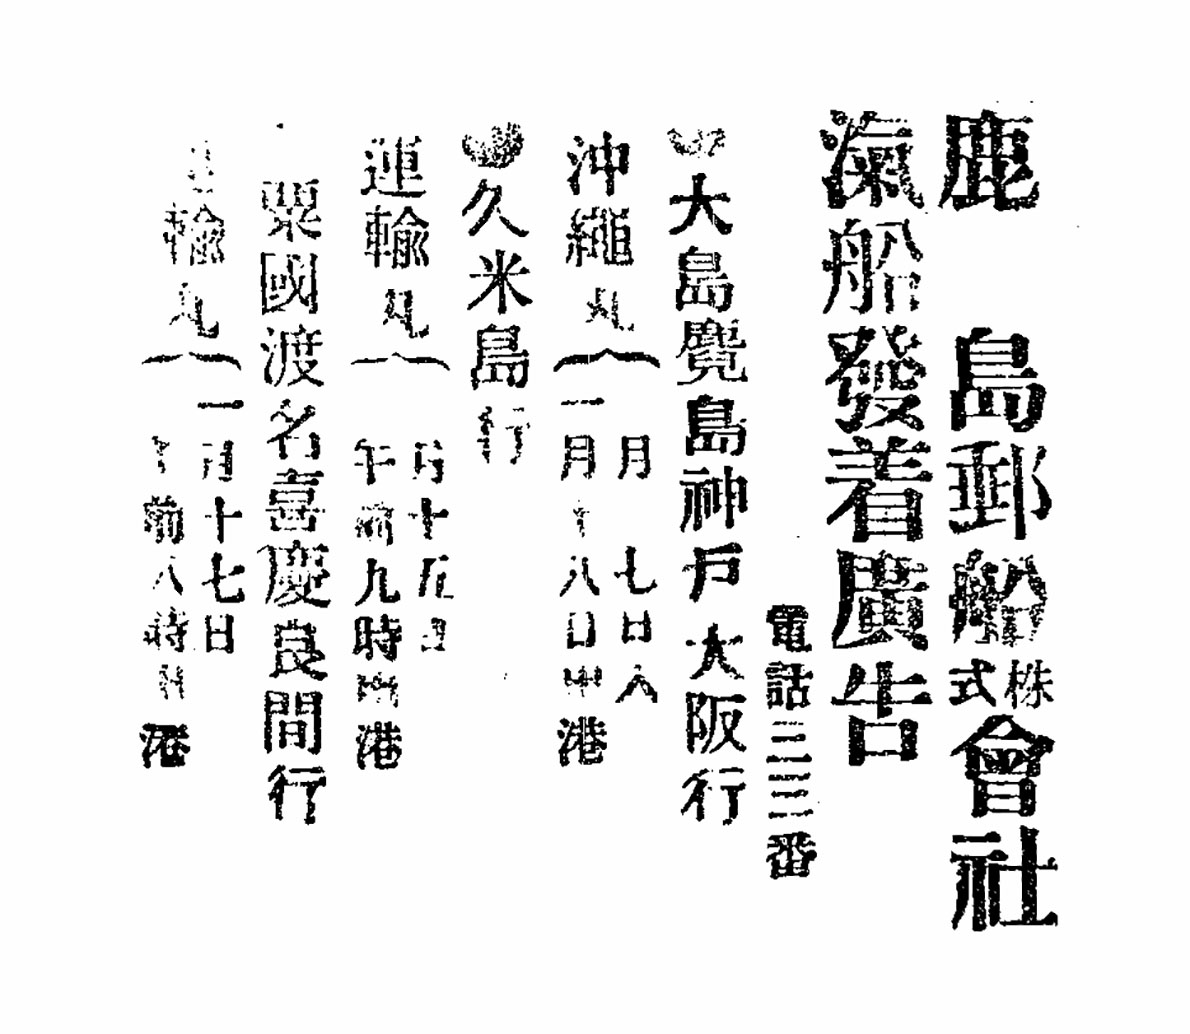 鹿島郵船株式會社
滊船發着廣告
電話三三番
大島麑島神戸大阪行
沖繩丸
月七日入
一月十八日出港
久米島行
運輸丸
月十五日
午前九時出港
粟國渡名喜慶良間行
運輸丸
一月十七日
午前八時出港